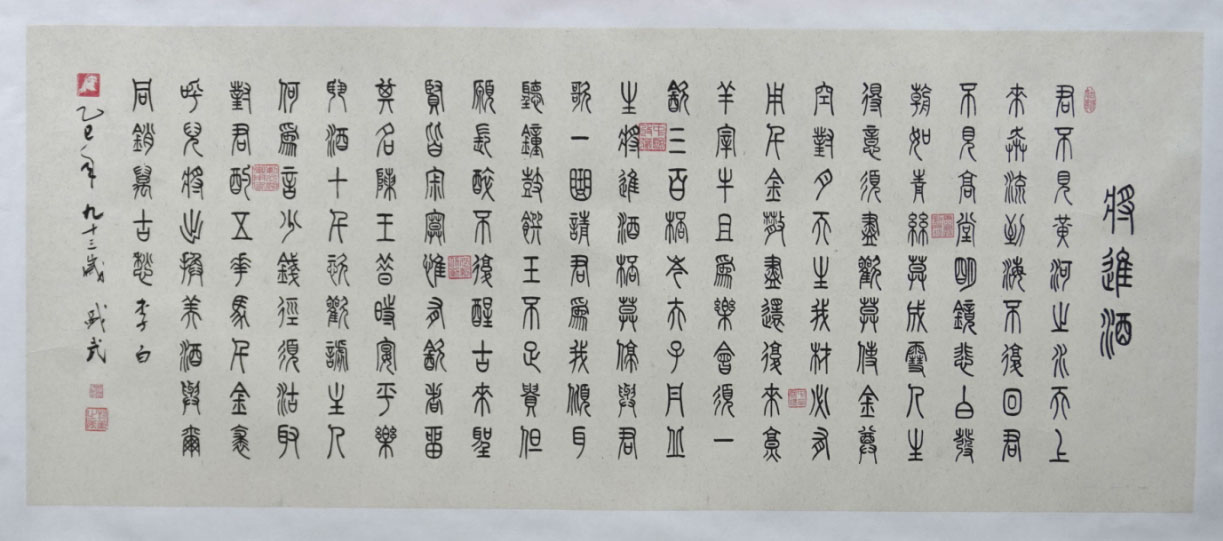 將進酒
君不見黃河之水天上
來奔流到海不復回君
不見高堂明鏡悲白發
朝如青絲莫成雪人生
得意須盡歡莫使金尊
空對月天生我材必有
用千金散盡還復來烹
羊宰牛且爲樂會須一
飲三百杯岑夫子丹丘
生將進酒杯莫停與君
歌一曲請君爲我傾耳
聽鐘鼓饌玉不足貴但
願長醉不復醒古來聖
賢皆寂寞惟有飲者留
其名陳王昔時宴平樂
斗酒十千恣歡謔主人
何爲言少錢徑須沽取
對君酌五花馬千金裘
呼兒將出換美酒與爾
同銷萬古愁李白
乙巳年九十三歲